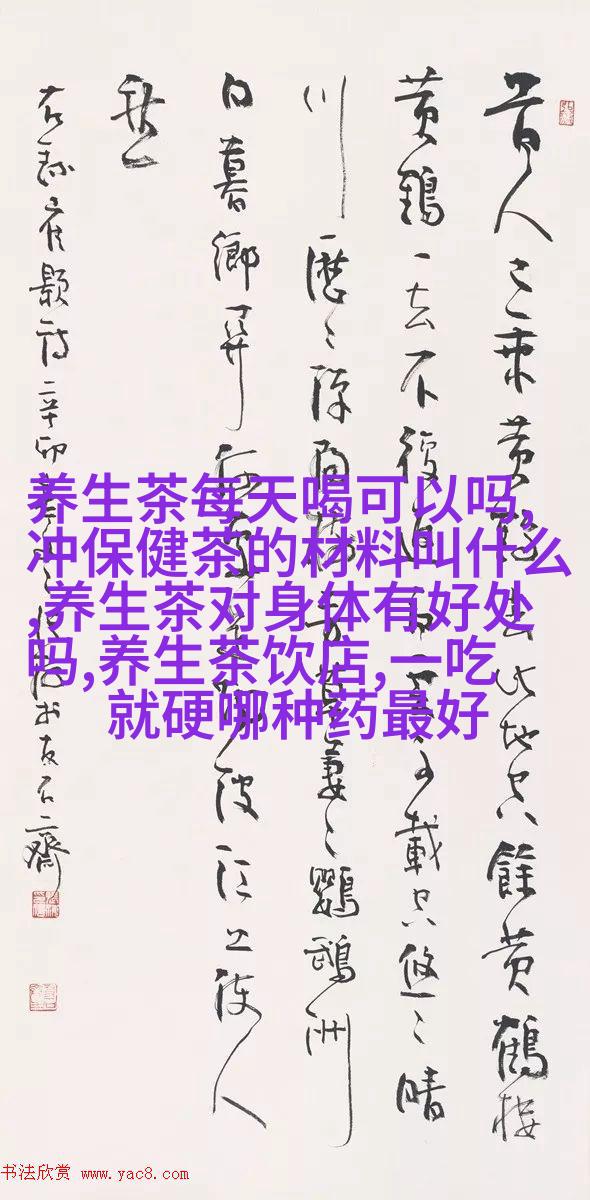 养生茶每天喝可以吗,
冲保健茶的材料叫什么
,养生茶对身体有好处
吗,养生茶饮店,一吃
就硬哪种药最好
昔人已乘黄鹤去此地空餘黄鶴楼
黄鶴一去不復返白雲千載空悠々晴
川歷々漢陽樹芳草萋々鸚鵡洲
日暮鄉關何處是煙波江上使人
愁
右録崔颢诗辛卯
书法欣赏 www.yac8.com